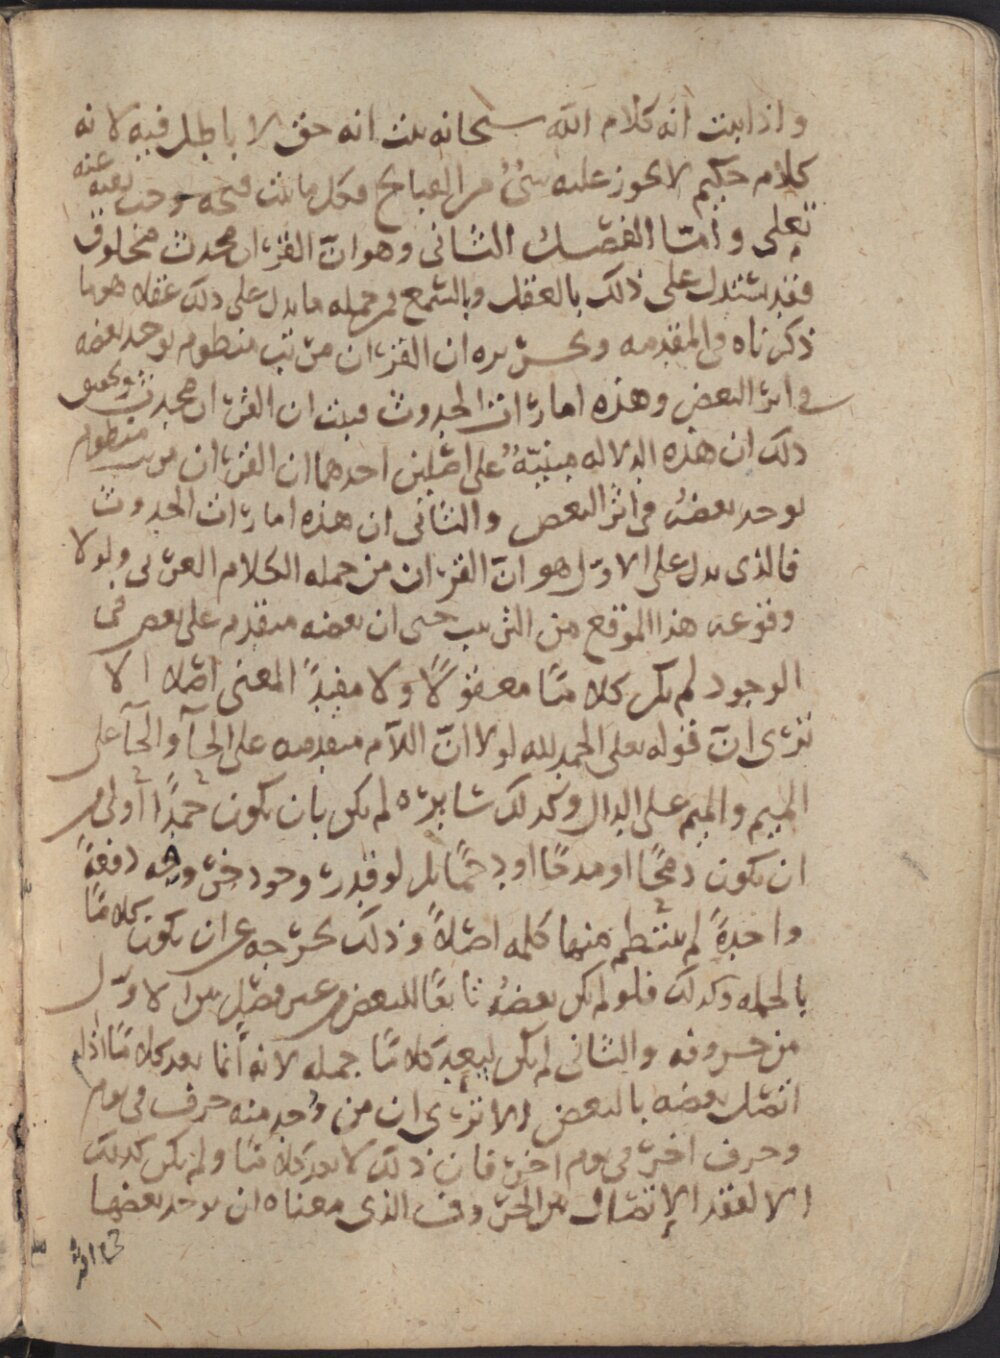 واذا ثبت انه كلام الله سبحانه ثبت انه حق لا باطل فيه لانه
كلام حكيم لا يجوز عليه شئ من القبايح فكل ما ثبت قبحه وجب نفيه عنه
تعلى واما الفصل الثانى وهو ان القران محدث مخلوق
فقد يستدل على ذلك بالعقل وبالسمع فمن جمله ما يدل على ذلك عقلا هو ما
ذكرناه فى المقدمه وتحريره ان القران مرتب منظوم يوجد بعضه
فى اثر البعض وهذه امارات الحدوث فثبت ان القران محدث وتحقيق
ذلك ان هذه الدلاله مبنيّةٌ على اصلين احدهما ان القران مرتب منظوم
يوجد بعضهُ فى اثر البعض والثانى ان هذه امارات الحدوث
فالذى يدل على الاوّل هو انّ القران من جمله الكلام العربى ولولا
وقوعه هذا الموقع من الترتيب حتى ان بعضه متقدم على بعض فى
الوجود لم يكن كلامًا معقولًا ولا مفيدً المعنى اصلا الا
ترى انّ قوله تعلى الحمد لله لولا انّ اللام متقدمه على الحآ والحآ على
الميم والميم على الدال وكذلك سايره لم يكن بان يكون حمدًا أولى من
ان يكون دمحًا او مدحًا او دحمًا بل لو قدر وجود حروفه دفعةً
واحدةً لم ينتظم منها كلمه اصلاً وذلك يخرجه عن ان يكون كلامًا
بالجمله وكذلك فلو لم يكن بعضهُ تابعًا للبعض من غير فصل بين الاوّل
من حروفه والثانى لم يكن ليعدّ كلامًا جمله لانه انما يعد كلامًا اذا
اتصل بعضه بالبعض الا ترى ان من وُجد منه حرف فى يوم
وحرف اخر فى يوم اخر فان ذلك لا يعد كلامًا ولم يكن كذلك
الا لفقد الاتصال بين الحروف الذى معناه ان يوجد بعضها
فى اثر